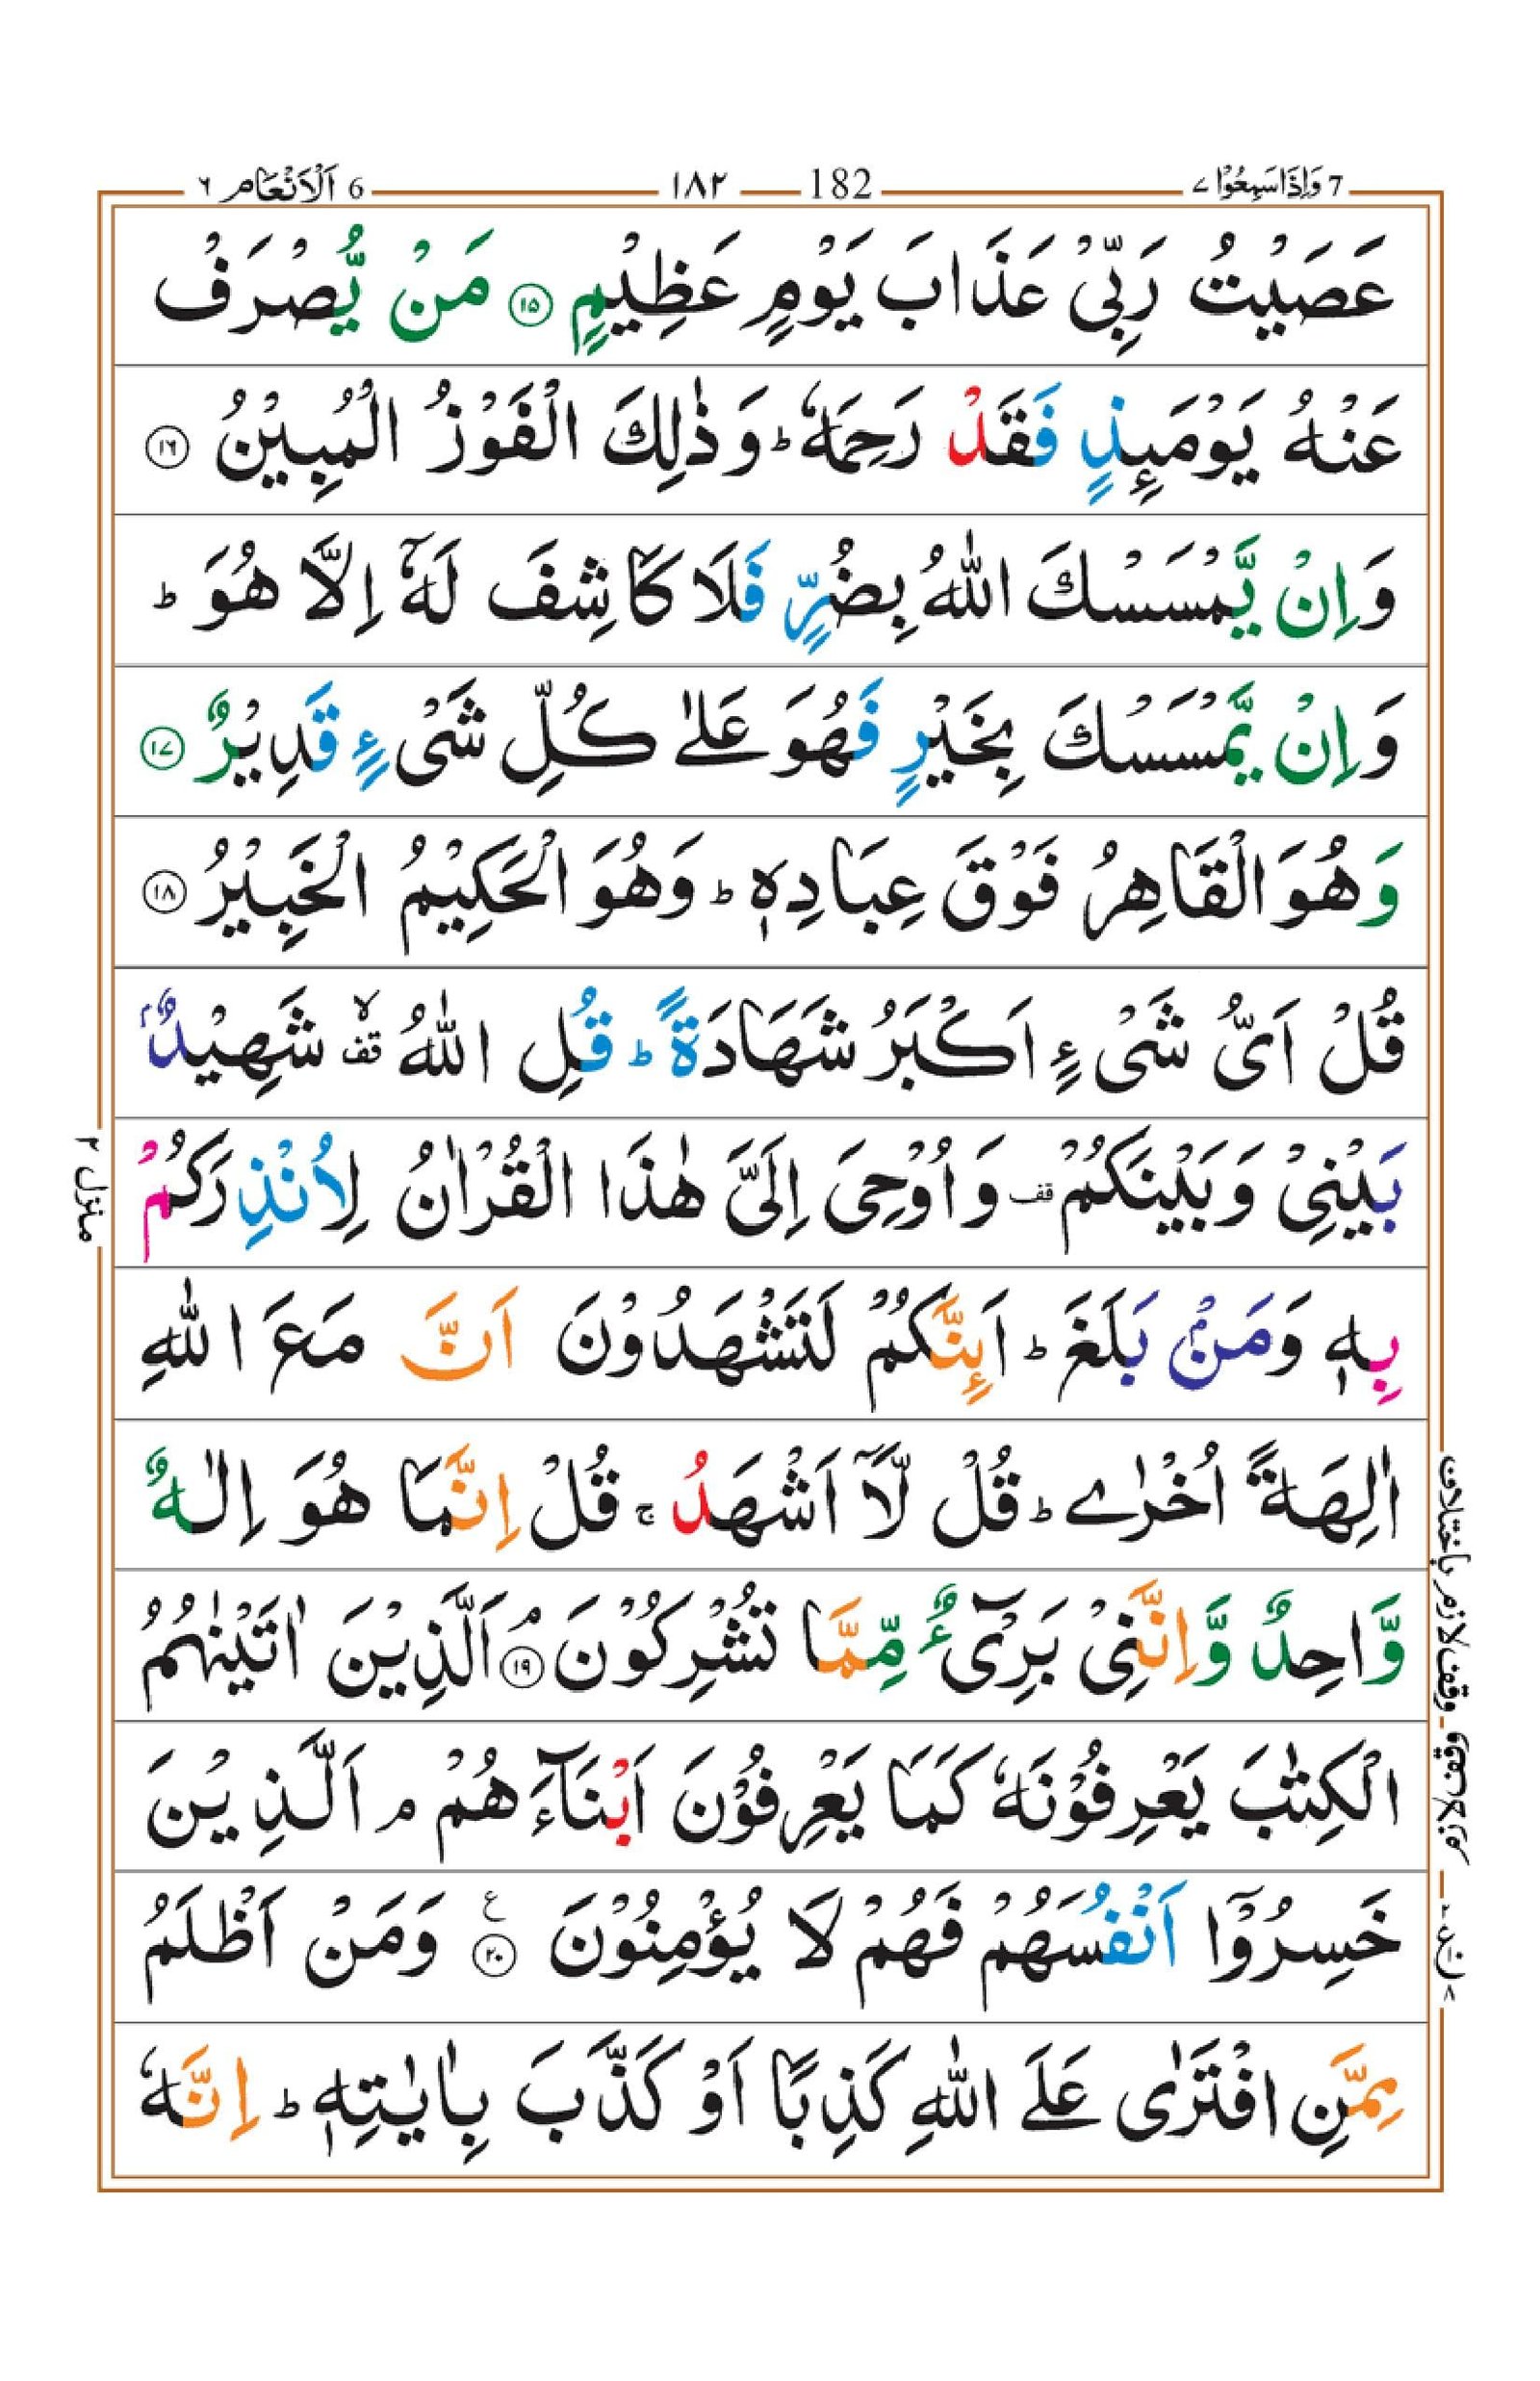 7 وَاِذَا سَمِعُوْا ٧ 182 ١٨٢ 6 اَلْاَنْعَام ٦
عَصَيْتُ رَبِّیْ عَذَابَ يَوْمٍ عَظِيْمٍ ۝١٥ مَنْ يُّصْرَفْ
عَنْهُ يَوْمَىِٕذٍ فَقَدْ رَحِمَهٗ ؕ وَ ذٰلِكَ الْفَوْزُ الْمُبِيْنُ ۝١٦
وَاِنْ يَّمْسَسْكَ اللّٰهُ بِضُرٍّ فَلَا كَاشِفَ لَهٗۤ اِلَّا هُوَ ؕ
وَاِنْ يَّمْسَسْكَ بِخَيْرٍ فَهُوَ عَلٰی كُلِّ شَیْءٍ قَدِيْرٌ ۝١٧
وَهُوَ الْقَاهِرُ فَوْقَ عِبَادِهٖ ؕ وَهُوَ الْحَكِيْمُ الْخَبِيْرُ ۝١٨
قُلْ اَیُّ شَیْءٍ اَكْبَرُ شَهَادَةً ؕ قُلِ اللّٰهُ ۙ قف شَهِيْدٌۢ
بَيْنِیْ وَبَيْنَكُمْ قف وَاُوْحِیَ اِلَیَّ هٰذَا الْقُرْاٰنُ لِاُنْذِرَكُمْ
بِهٖ وَمَنْۢ بَلَغَ ؕ اَىِٕنَّكُمْ لَتَشْهَدُوْنَ اَنَّ مَعَ اللّٰهِ
اٰلِهَةً اُخْرٰی ؕ قُلْ لَّاۤ اَشْهَدُ ۚ قُلْ اِنَّمَا هُوَ اِلٰهٌ
وَّاحِدٌ وَّاِنَّنِیْ بَرِیْٓءٌ مِّمَّا تُشْرِكُوْنَ ۘ۝١٩ اَلَّذِيْنَ اٰتَيْنٰهُمُ
الْكِتٰبَ يَعْرِفُوْنَهٗ كَمَا يَعْرِفُوْنَ اَبْنَآءَهُمْ ۘ اَلَّذِيْنَ
خَسِرُوْۤا اَنْفُسَهُمْ فَهُمْ لَا يُؤْمِنُوْنَ ۝٢٠ ع وَمَنْ اَظْلَمُ
مِمَّنِ افْتَرٰی عَلَی اللّٰهِ كَذِبًا اَوْ كَذَّبَ بِاٰيٰتِهٖ ؕ اِنَّهٗ
منزل ٢